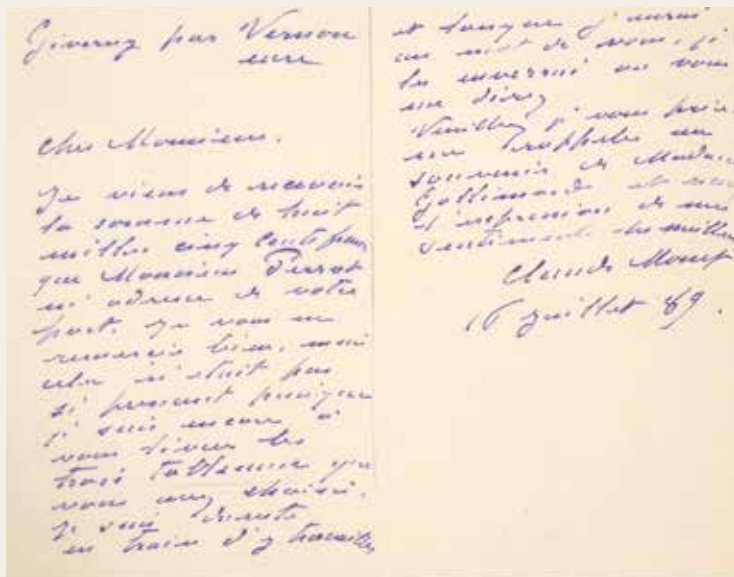 Giverny par Vernon
eure
Cher Monsieur.
Je viens de recevoir
la somme de huit
milles cinq cents francs
que Monsieur Perrot
m'adresse de votre
part. Je vous en
remercie bien, mais
cela n'était pas
si pressant puisque
je suis encore à
vous livrer les
trois tableaux que
vous avez choisis.
je suis
en train d'y travailler
et lorsque j'aurai
un mot de vous, je
les enverrai ou vous
me direz
Veuillez je vous prie
me rappeler au
souvenir de Madame
Gallimard et
l'expression de mes
sentiments les meilleurs
Claude Monet
16 juillet 89.